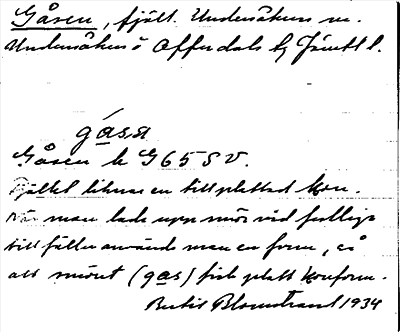 Gåsen, fjäll. Undersåkers sn.
Undersåkers o Offerdals tg Jämtl l.
gása
Gåsen k G65SV.
Fjället liknar en tillplattad kon.
När man lade upp mör vid festliga
tillfällen använde man en form, så
att möret (gas) fick platt konform.
Bertil Blomstrand 1934